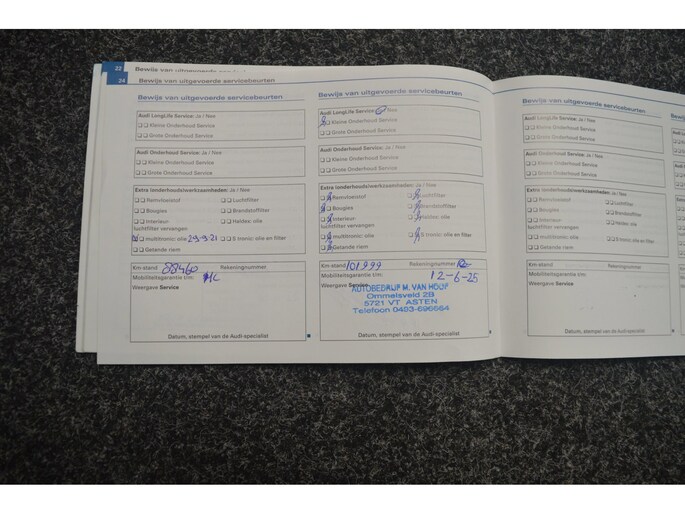 22
24 Bewijs van uitgevoerde servicebeurten
Bewijs van uitgevoerde servicebeurten
Audi LongLife Service: Ja / Nee
Kleine Onderhoud Service
Grote Onderhoud Service
Audi Onderhoud Service: Ja / Nee
Kleine Onderhoud Service
Grote Onderhoud Service
Extra (onderhouds)werkzaamheden: Ja / Nee
Remvloeistof Luchtfilter
Bougies Brandstoffilter
Interieur- Haldex: olie
luchtfilter vervangen
multitronic: olie 29-9-21 S tronic: olie en filter
Getande riem
Km-stand 88460 Rekeningnummer
Mobiliteitsgarantie t/m:
Weergave Service
Datum, stempel van de Audi-specialist
Bewijs van uitgevoerde servicebeurten
Audi LongLife Service: Ja / Nee
Kleine Onderhoud Service
Grote Onderhoud Service
Audi Onderhoud Service: Ja / Nee
Kleine Onderhoud Service
Grote Onderhoud Service
Extra (onderhoudswerkzaamheden: Ja / Nee
Remvloeistof Luchtfilter
Bougies Brandstoffilter
Interieur- Haldex: olie
luchtfilter vervangen
multitronic: olie S tronic: olie en filter
Getande riem
Km-stand 101999 Rekeningnummer
Mobiliteitsgarantie t/m: 12-6-25
Weergave Service
AUTOBEDRIJF M. VAN HOOF
Ommelsveld 2B
5721 VT ASTEN
Telefoon 0493-696664
Datum, stempel van de Audi-specialist
Bewijs van uitgevoerde servicebeurten
Audi LongLife Service: Ja / Nee
Kleine Onderhoud Service
Grote Onderhoud Service
Audi Onderhoud Service: Ja / Nee
Kleine Onderhoud Service
Grote Onderhoud Service
Extra (onderhouds)werkzaamheden: Ja / Nee
Remvloeistof Luchtfilter
Bougies Brandstoffilter
Interieur- Haldex: olie
luchtfilter vervangen
multitronic: olie S tronic: olie en filter
Getande riem
Km-stand Rekeningnummer
Mobiliteitsgarantie t/m:
Weergave Service
Datum, stempel van de Audi-specialist